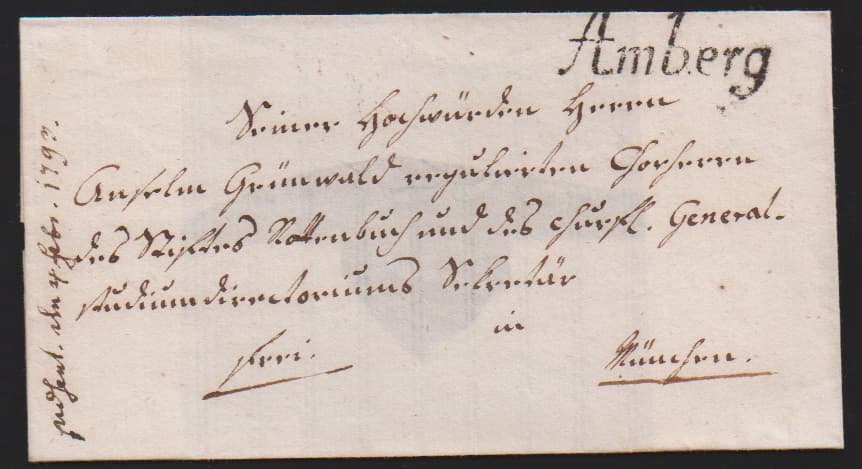 Amberg
Seiner Hochwürden Herrn
Anselm Grünwald regulierten Chorherrn
des Stiftes Rottenbuch und des churfl. General-
studiumdirectoriums Sekretär
in
frei. München.
den 4 febr. 1793.